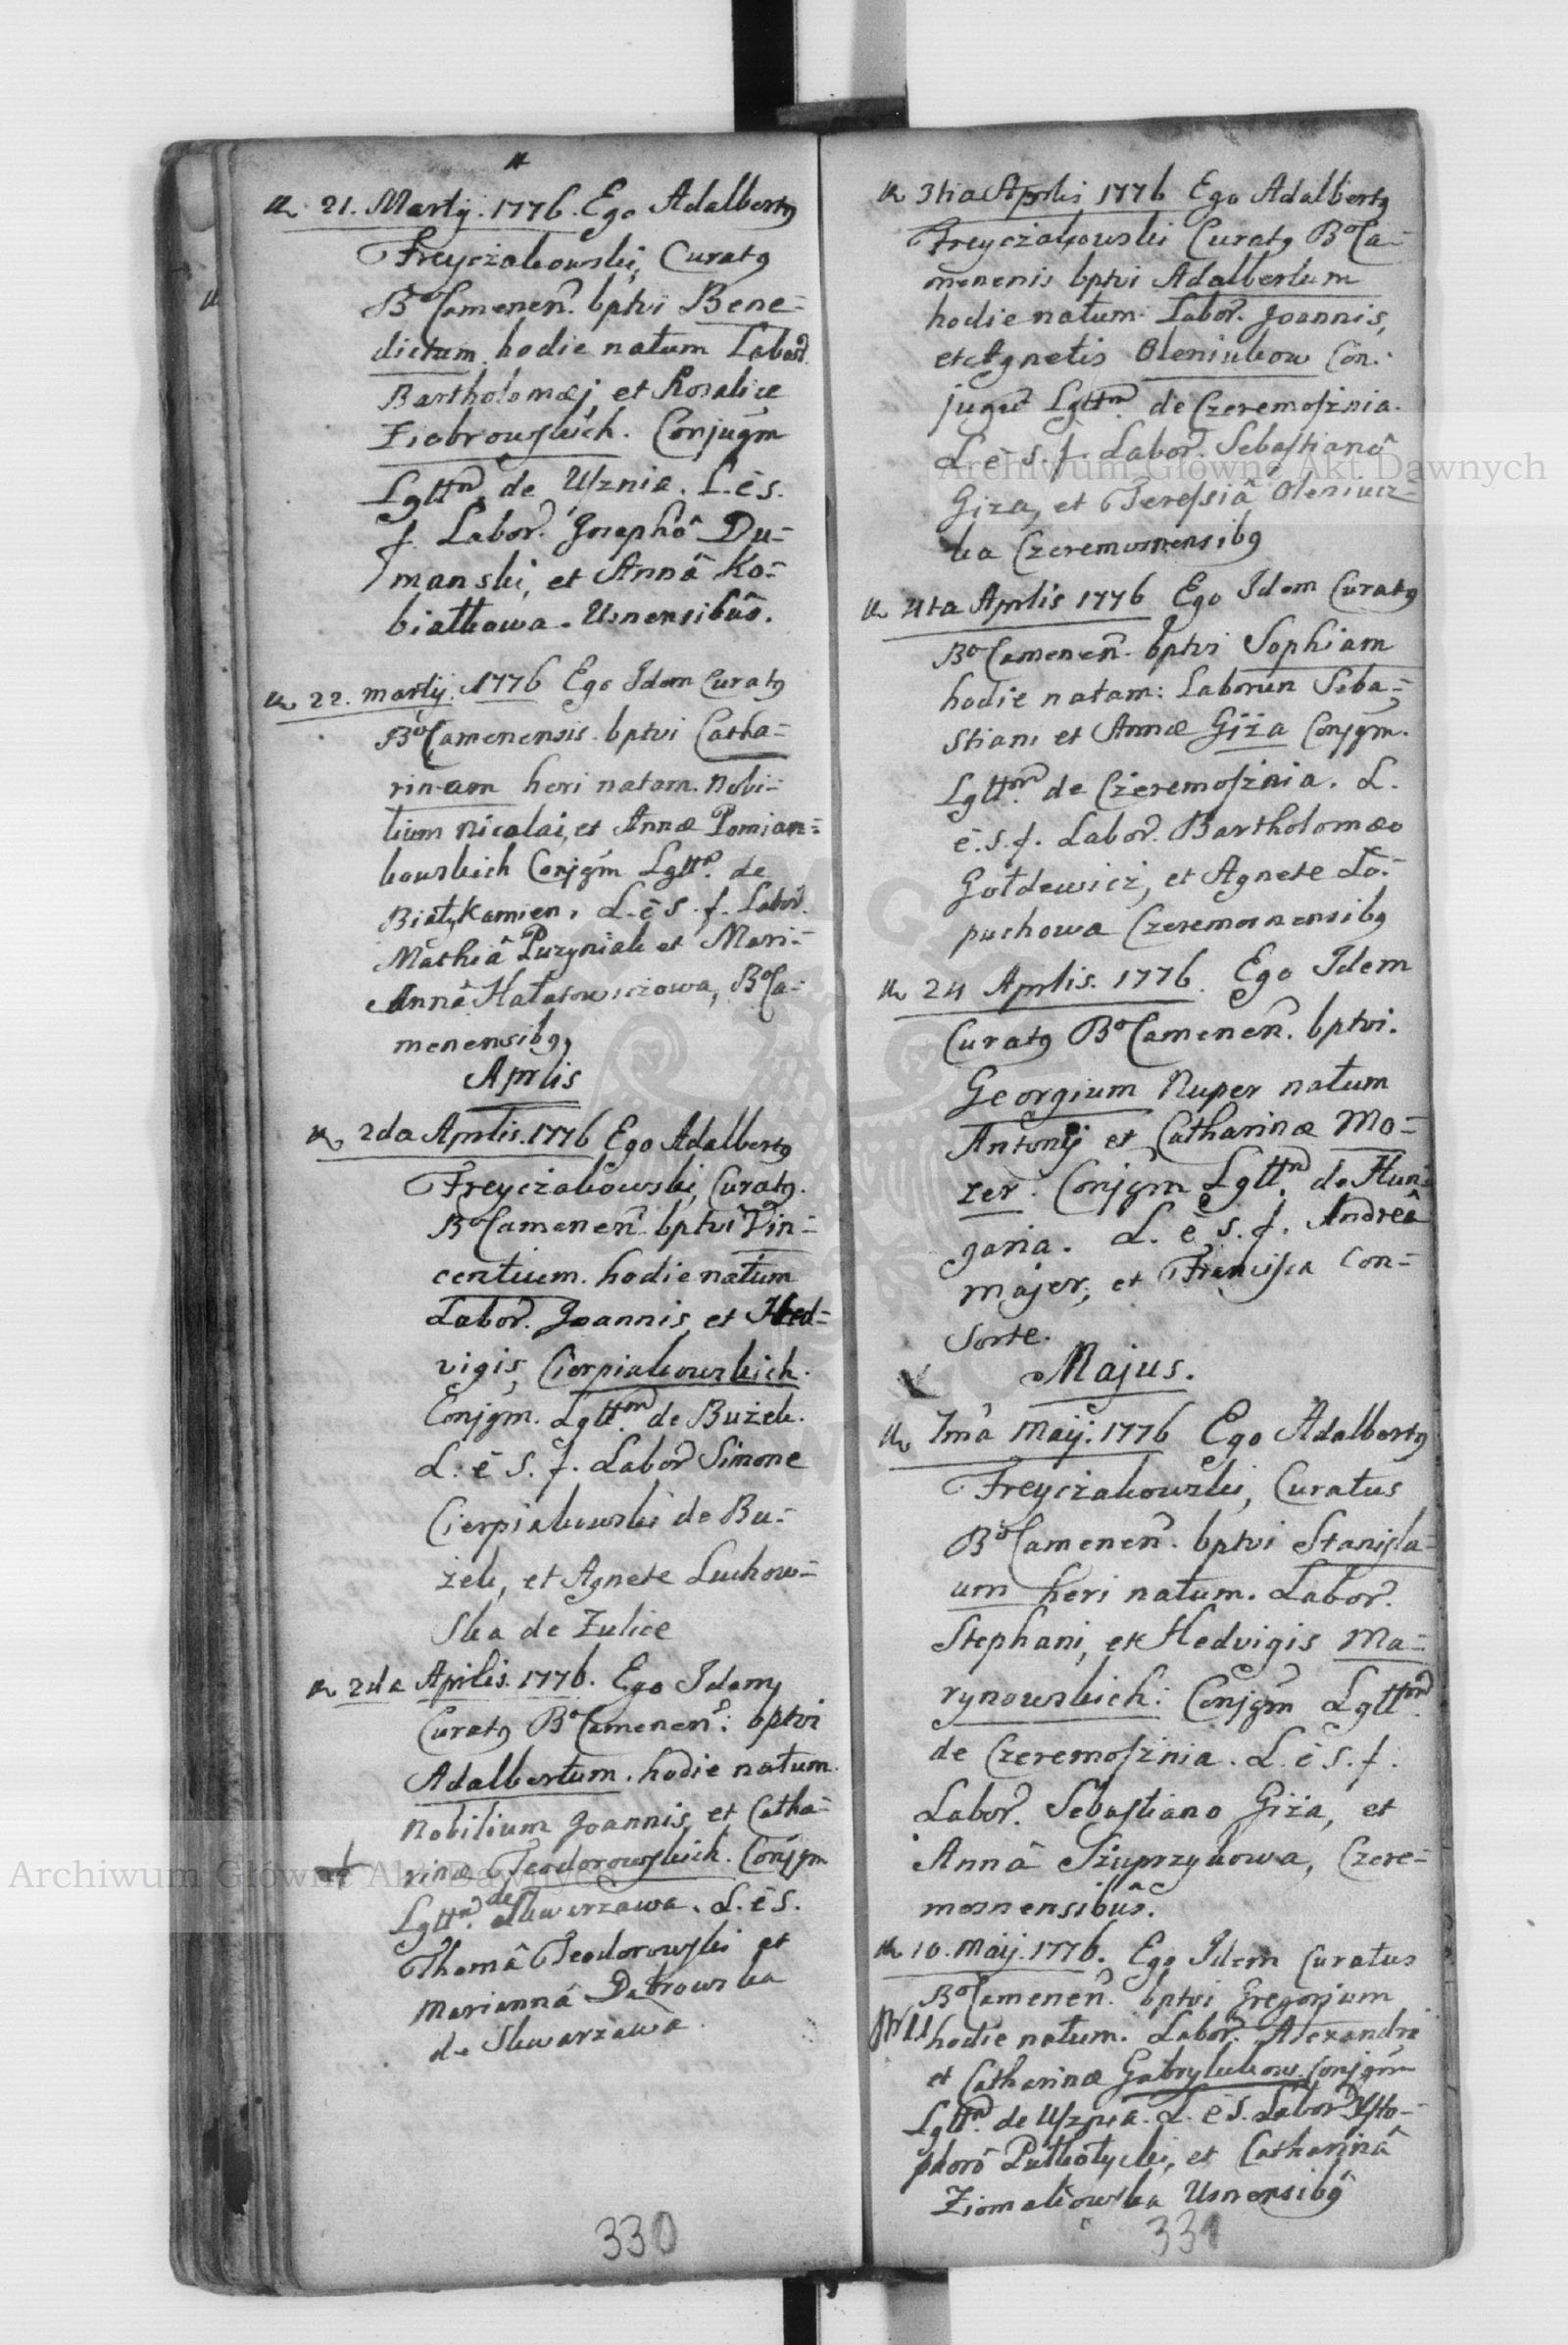 21. Martij. 1776. Ego Adalbertꝰ
Freyczakowski, Curatꝰ
BoCamenen. bptvi Bene=
dictum hodie natum Labor.
Bartholomæj et Rosaliæ
Ziobrowskich. Conjugm
Lgttm de Usznia. L. è S.
f. Labor. Josephô Du=
manski, et Annâ Ko=
białkowa. Usnensibûs.
22. Martij. 1776 Ego Idem Curatꝰ
BoCamenensis bptvi Catha=
rinam heri natam. Nobi=
lium Nicolai, et Annæ Pomian=
kowskich Conjgm Lgttm. de
Białykamien. L. è S. f. Labor.
Mathiâ Puzyniak et Mari=
Annâ Hałatowiczowa, BoCa=
menensibꝰ
Aprlis
2da Aprlis. 1776 Ego Adalbertꝰ
Freyczakowski, Curatꝰ.
BoCamenen. bptvi Vin=
centium. hodie natum
Labor. Joannis, et Hed=
vigis, Cierpiakowskich.
Conjgm. Lgttm de Bużek.
L. è S. f. Labor Simone
Cierpiakowski de Bu=
żek, et Agnete Luchow=
ska de Zulice
2da Aprilis. 1776. Ego Idem
Curatꝰ BoCamenen: bptvi
Adalbertum. hodie natum.
Nobilium Joannis, et Catha=
rinæ Teodorowskich. Conjgm
Lgttm. de Skwarzawa. L. è S.
Thomâ Teodorowski et
Mariannâ Dabrowska
de Skwarzawa.
330
3tia Aprlis 1776 Ego Adalbertꝰ
Freyczakowski Curatꝰ BoCa=
menenis bptvi Adalbertum
hodie natum. Labor. Joannis,
et Agnetis Oleniukow Con=
jugu Lgttm. de Czeremosznia.
L. è S. f. Labor. Sebastianô
Giza, et Teressiâ Oleniucz=
ka Czeremosnensibꝰ
4ta Aprlis 1776 Ego Idem Curatꝰ
BoCamenen. bptvi Sophiam
hodie natam: Laborun Seba=
stiani et Annæ Giża Conjgm.
Lgttor. de Czeremosznia. L.
è. S. f. Labor. Bartholomæo
Gołdewicz, et Agnete Ło=
puchowa Czeremosnensibꝰ
24 Aprlis. 1776. Ego Idem
Curatꝰ BoCamenen. bptvi.
Georgium Nuper natum
Antonij et Catharinæ Mo=
zer. Conjgm Lgttm. de Hun=
garia. L. è S. f. Andreâ
Majer, et Francisca Con=
sorte.
Majus.
1mâ Maij. 1776 Ego Adalbertꝰ
Freyczakowski, Curatus
BoCamenen. bptvi Stanisla=
um heri natum. Labor.
Stephani, et Hedvigis Ma=
rynowskich: Conjgm Lgttor.
de Czeremosznia. L. è S. f.
Labor. Sebastiano Giża, et
Annâ Szuprzynowa, Czere=
mosnensibûs.
10. Maij. 1776. Ego Idem Curatus
BoCamenen. bptvi Gregorium
hodie natum. Labor. Alexandri
et Catharinæ Gabrylukow. Conjgm
Lgttm. de Usznia. L. è S. Labor
Pułkotycki, et Catharinâ
Ziomakowska Usnensibꝰ
331
Archiwum Główne Akt Dawnych
Archiwum Główne Akt Dawnych